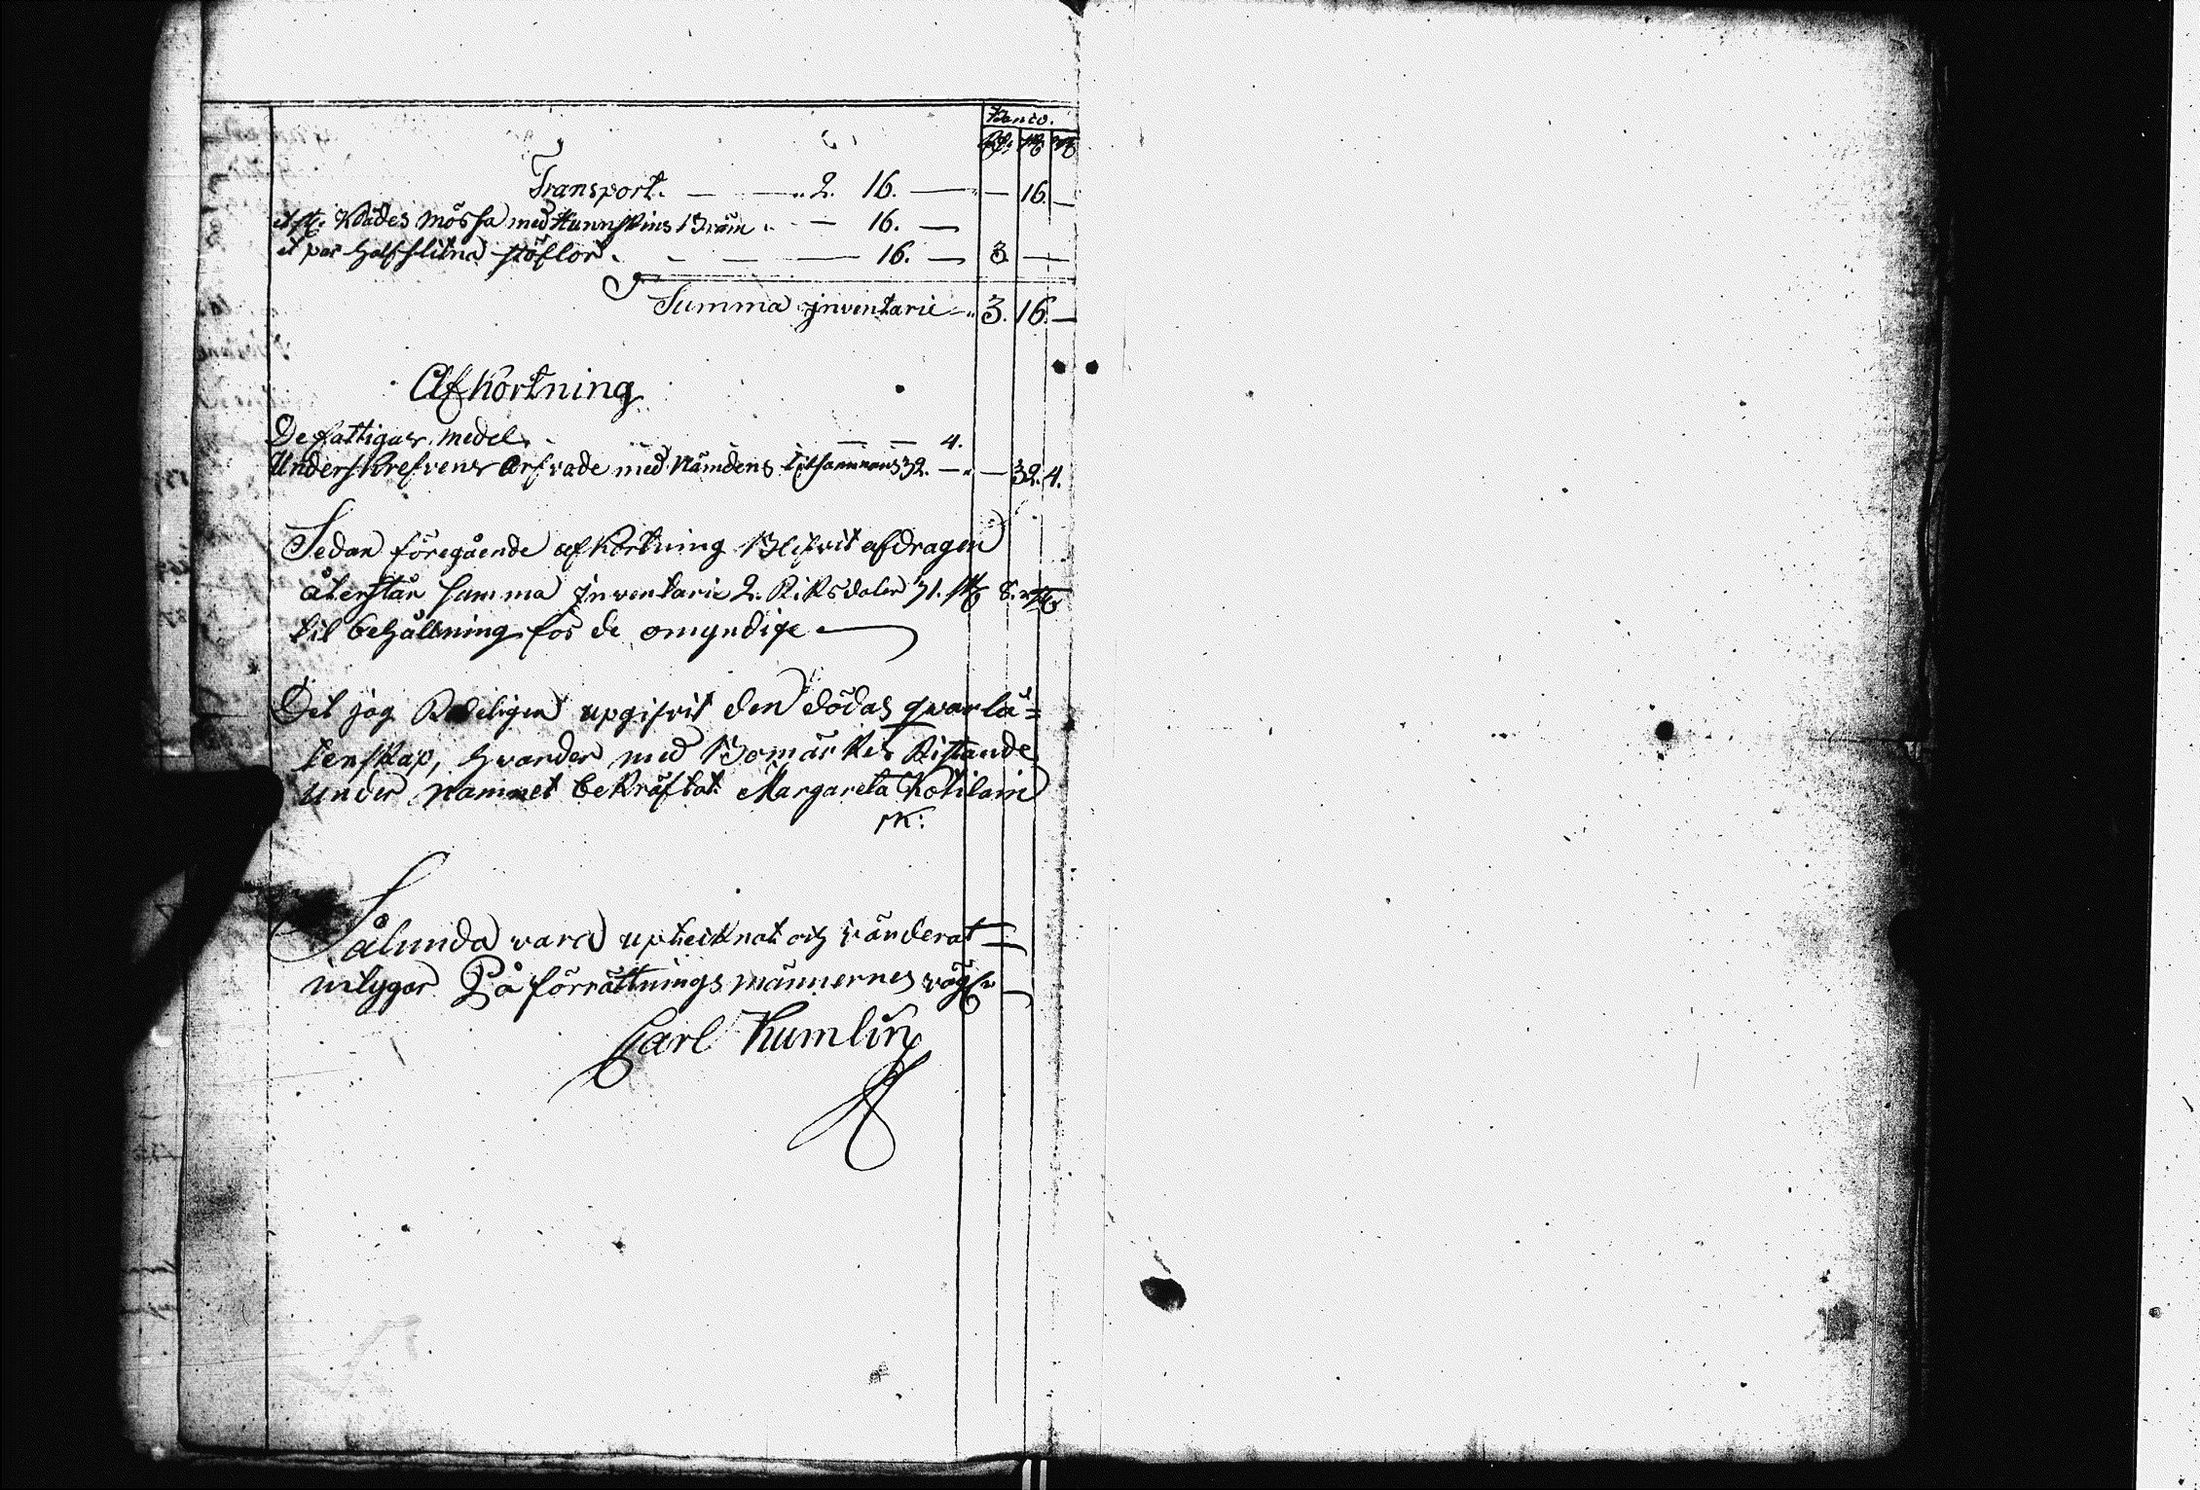 Banco.
Rd: sk rst
Transport. — — " 2. 16. — " — 16. —
et st. Klädes mössa med Hunnskins Bräm. — 16. —
et par halfslitna stöflor. — — — 16. — 3. — —
Summa Jnventarie — " 3. 16. —
Afkortning
De fattigas medel. — — 4.
Underskrefvens arfvade med Nämdens tilsammans 32. — " — 32. 4.
Sedan föregående afkortning Blifvit afdragen
återstår summa Jnventarie 2. Riksdaler 31. sk 8. rst
til behållning för de omyndige —
Det jag Redeligen upgifvit den dödas qvarlå=
tenskap, hvarder med Bomärkes Ristande
under namnet bekräftat Margareta Kotilain
Sålunda vara uptecknat och vänderat
vitygar På förrättnings männernes vägnr
Carl Humlin